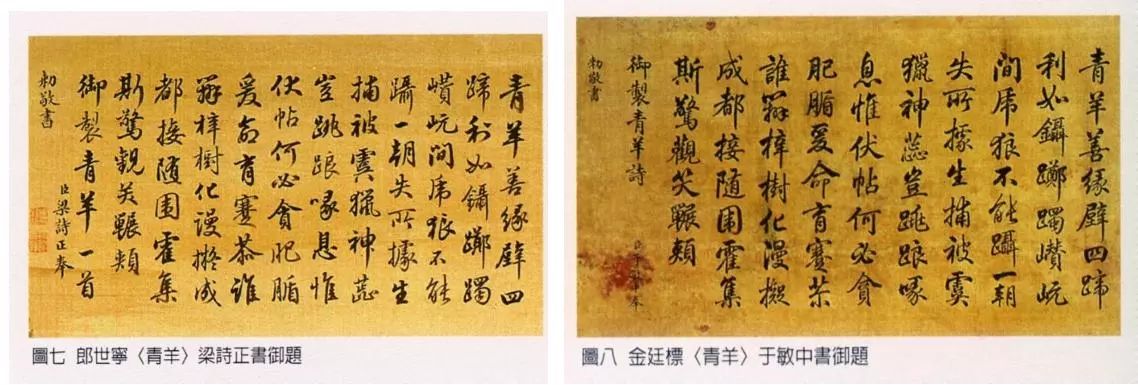 青羊善緣壁四
蹄利如鑷躑躅
巑岏間虎狼不能
躡一朝失所據生
捕被虞獵神蕊
豈跳踉喙息惟
伏帖何必貪肥腯
爰命育誰
梓樹化謾擬成
都接随圍霍集
斯驚觀笑囅頰
御製青羊一首
臣梁詩正奉
勅敬書
圖七 郎世寧〈青羊〉梁詩正書御題
青羊善緣壁四蹄
利如鑷躑躅巑岏
間虎狼不能躡一朝
失所據生捕被虞
獵神蕊豈跳踉喙
息惟伏帖何必貪
肥腯爰命育
誰梓樹化漫擬
成都接随圍霍集
斯驚觀笑囅頰
御製青羊詩
臣于敏中奉
勅敬書
圖八 金廷標〈青羊〉于敏中書御題